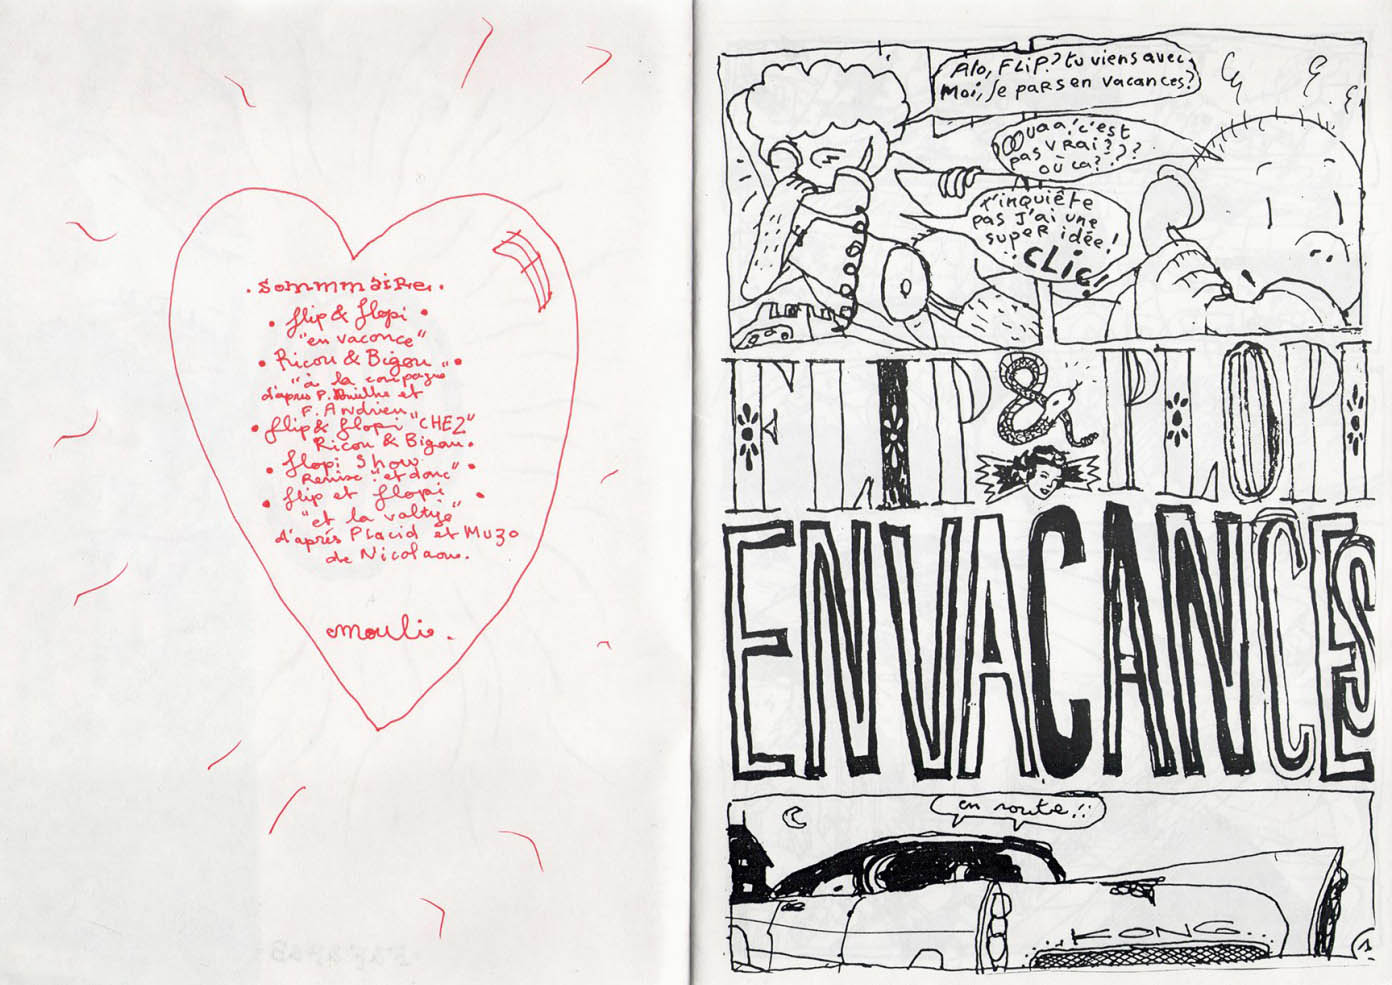 . sommmaire .
• flip & flopi •
"en vacance"
• Ricou & Bigou •
"à la campagne"
d'après P. et
F. Andrieu
• flip & flopi "CHEZ"
Ricou & Bigou •
• flopi Show •
Remixe "et donc"
• flip et flopi •
"et la valtyse"
d'après Placid et Muzo
de Nicolaou.
moulio.
Alo, FLiP? tu viens avec
Moi, Je pars en vacances?
Ouaa! c'est
pas vrai???
où ça??
T'inquiète
pas J'ai une
super idée!
CLIC!
FLIP & PLOPI
EN VACANCES
en route!!
KONG
1